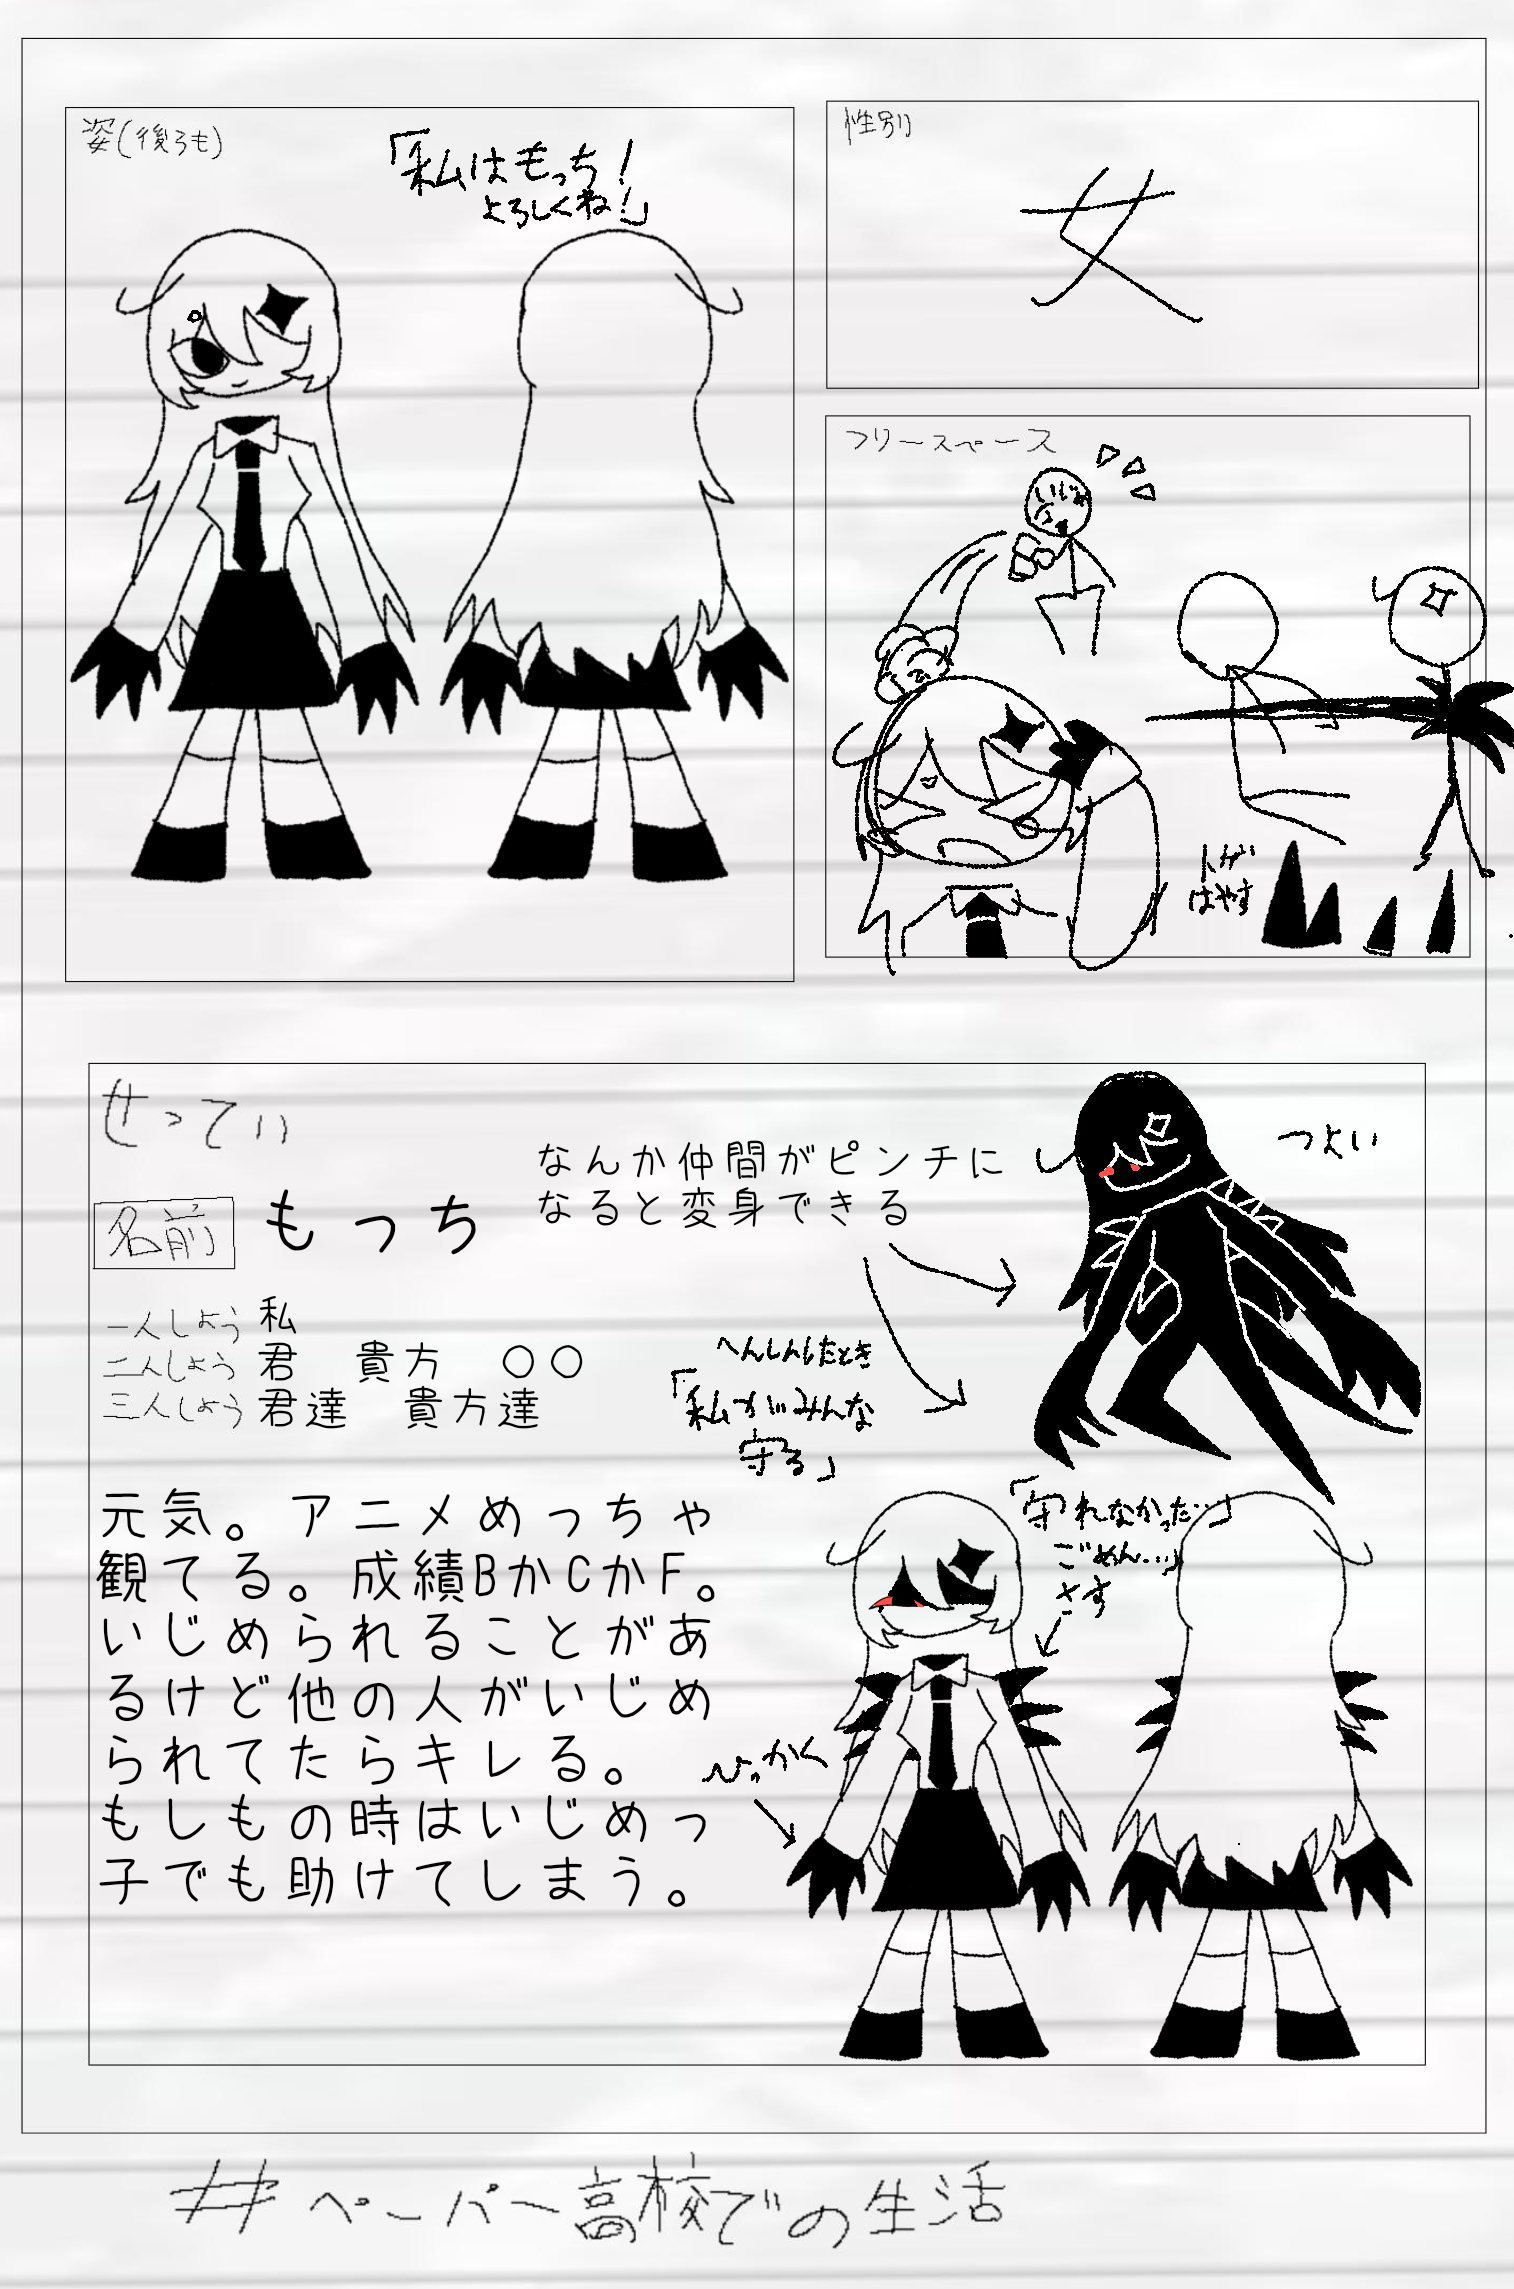 姿(後ろも)
「私はもっち!
よろしくね!」
性別
女
フリースペース
いじめ
っ子
トゲ
はやす
せってい
名前 もっち
なんか仲間がピンチに
なると変身できる
つよい
一人しょう 私
二人しょう 君 貴方 〇〇
三人しょう 君達 貴方達
へんしんしたとき
「私がみんな
守る」
「守れなかった…」
ごめん…」
さす
ひっかく
元気。アニメめっちゃ
観てる。成績BかCかF。
いじめられることがあ
るけど他の人がいじめ
られてたらキレる。
もしもの時はいじめっ
子でも助けてしまう。
#ペーパー高校での生活